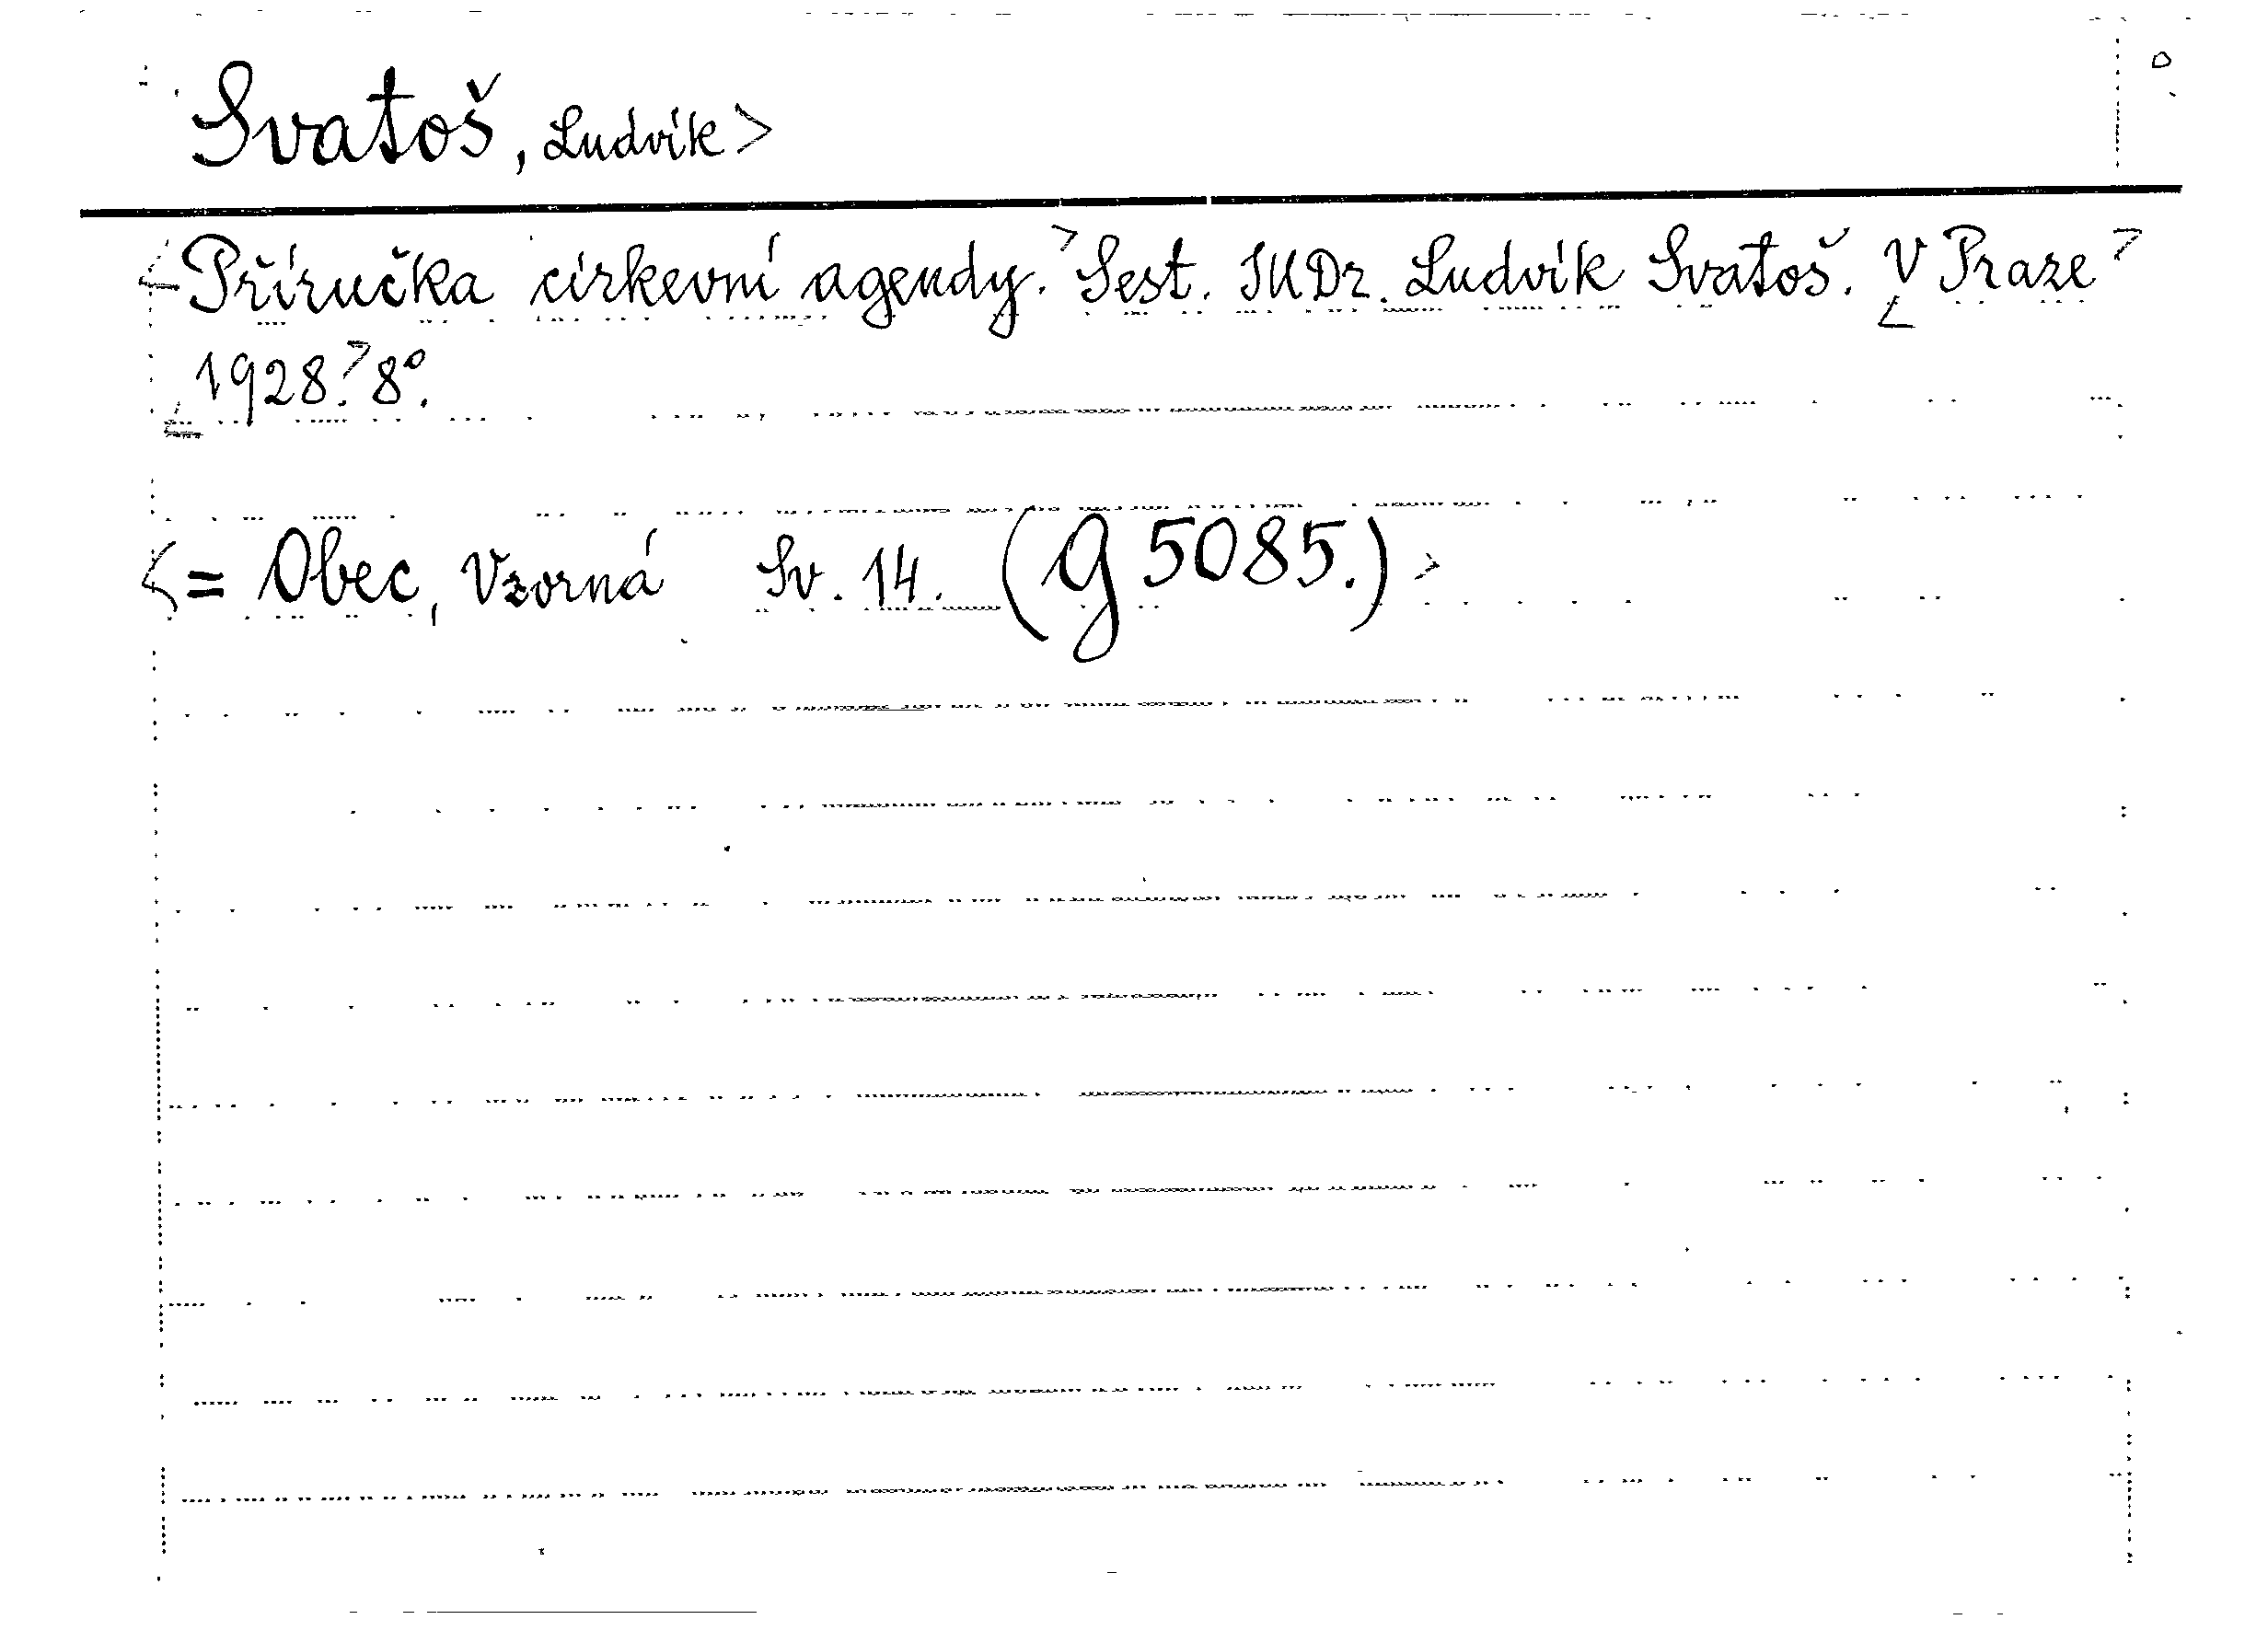 Svatoš, Ludvík>
<Příručka církevní agendy.> Sest. JUDr. Ludvík Svatoš. <V Praze>
<1928.> 8°.
<= Obec, Vzorná Sv. 14. (g 5085.)>